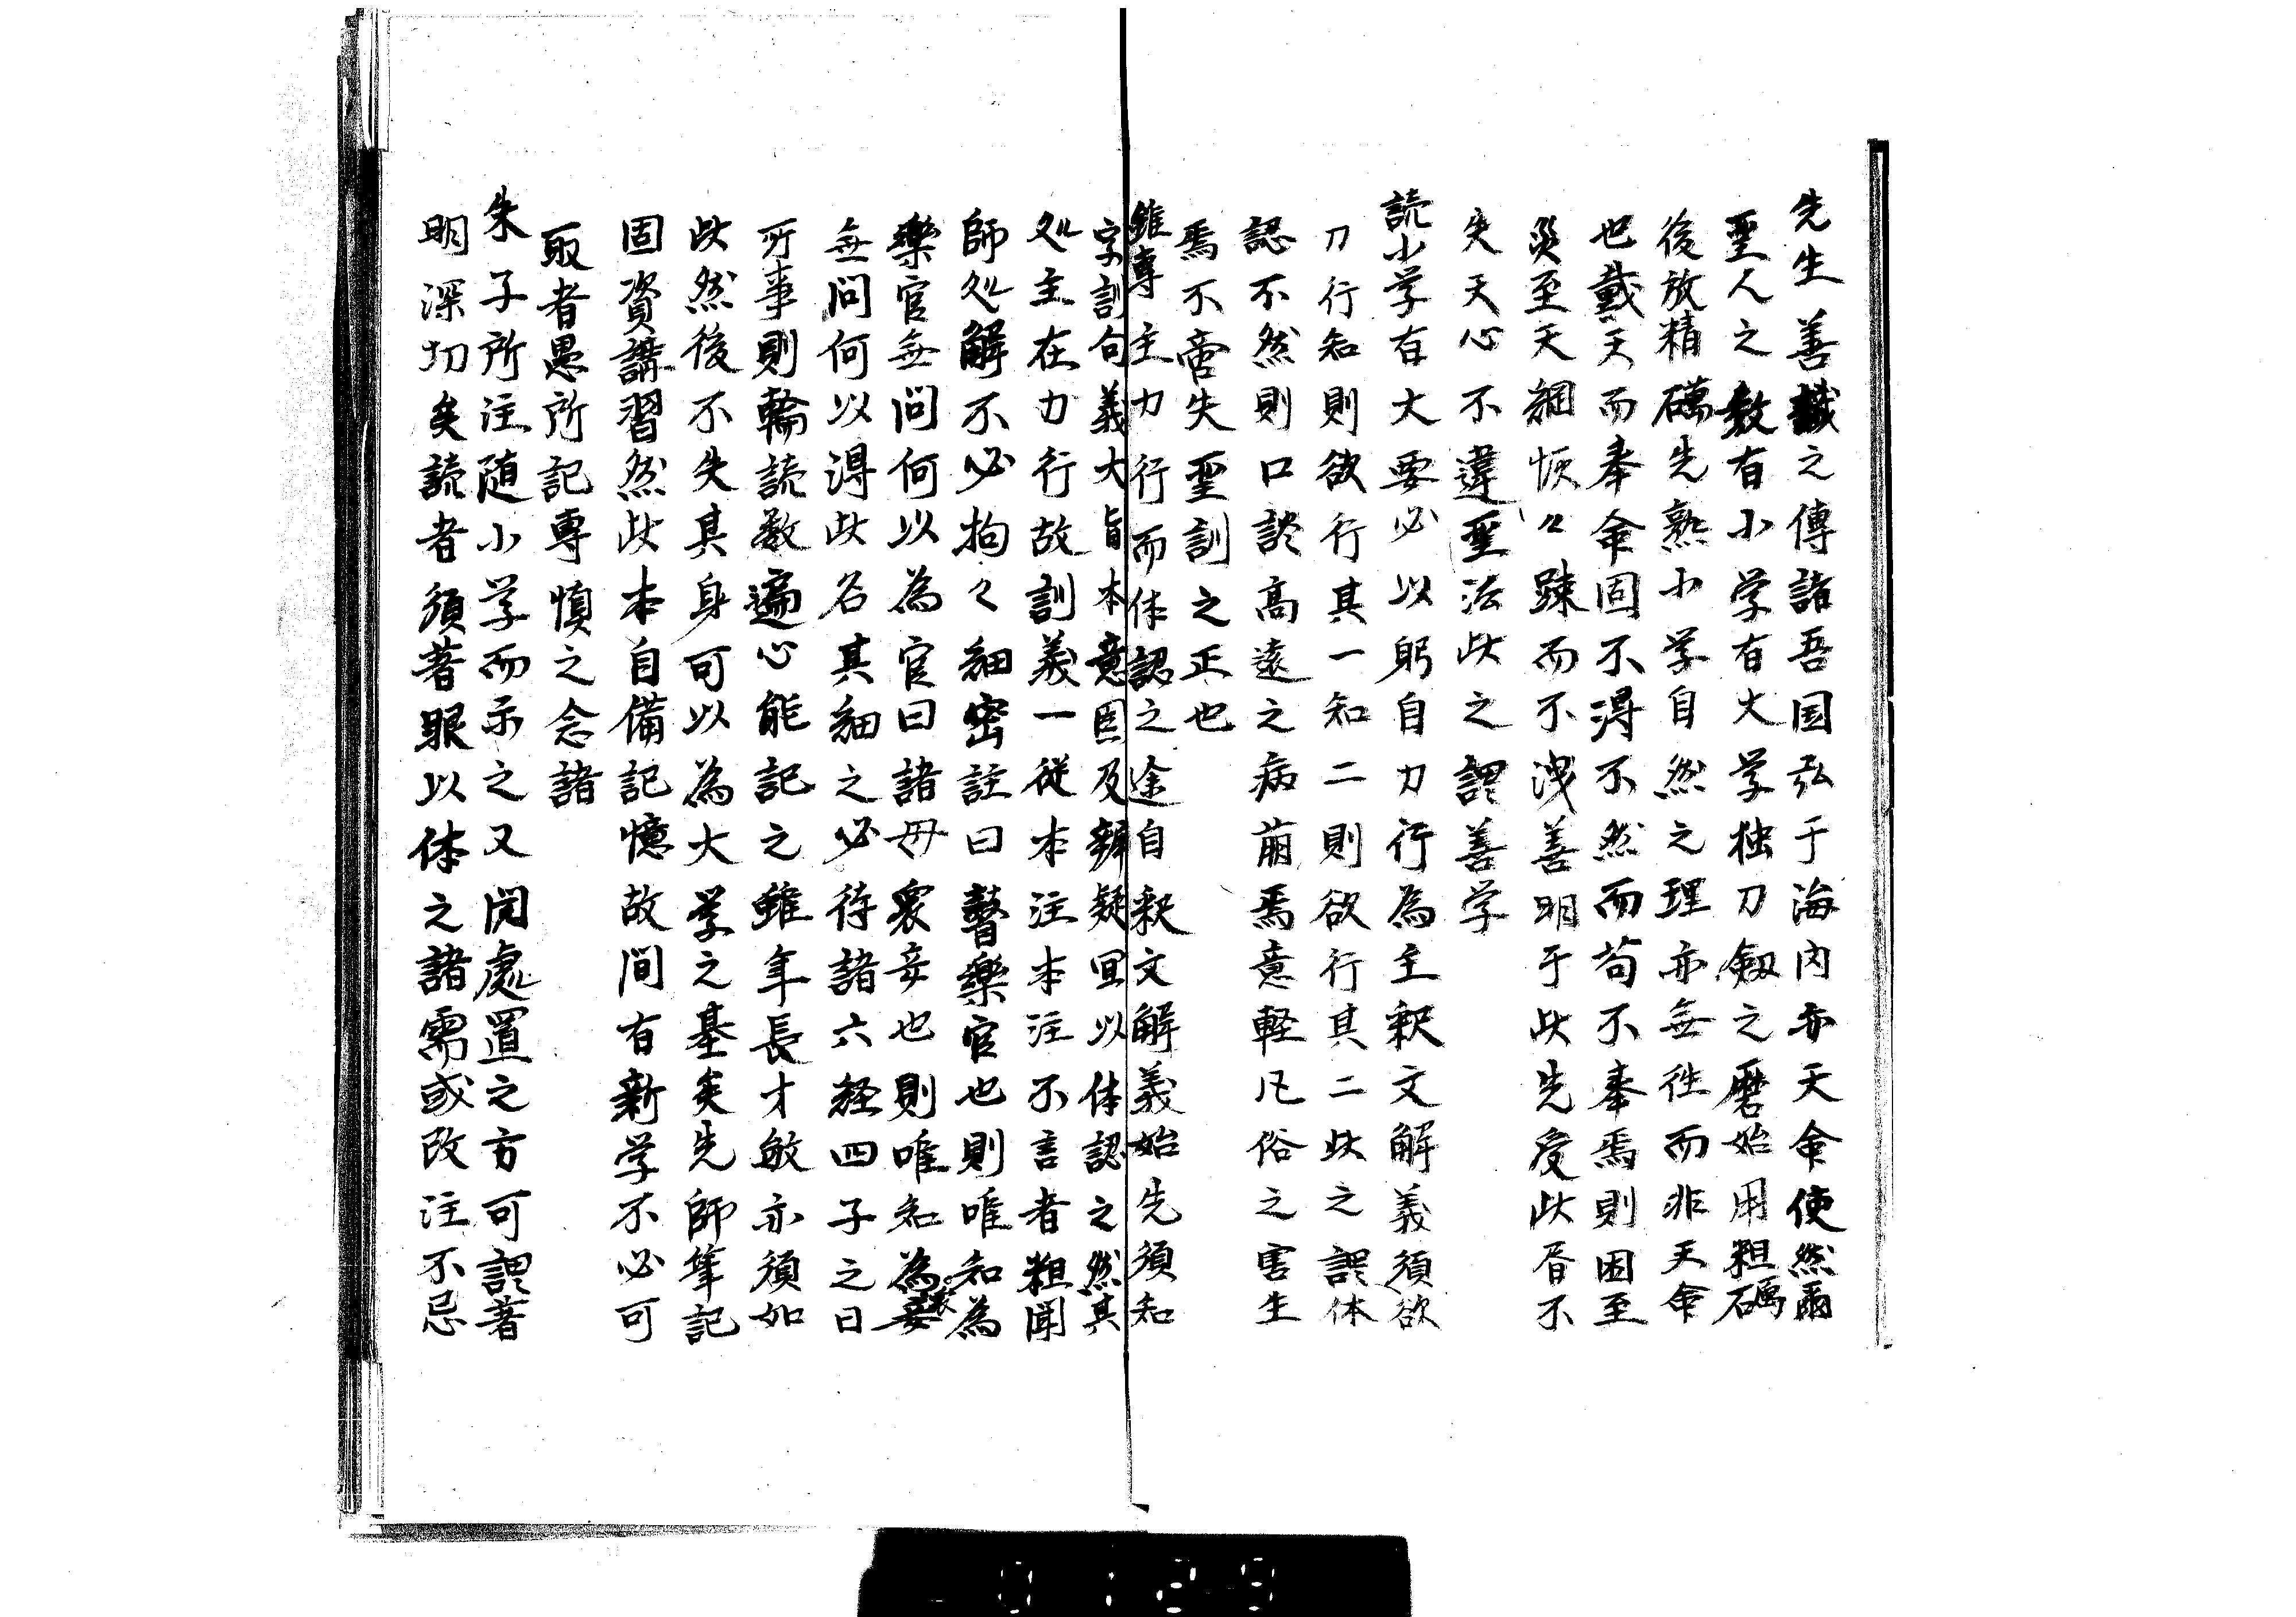 先生善繊之傳諸吾国弘于海内亦天命使然爾
聖人之教有小学有大学独刀劔之磨始用粗礪
後放精礪先熟小学自然之理亦無徃而非天命
也戴天而奉命固不得不然而苟不奉焉則困至
災至天網恢々踈而不洩善明于此先受此眉不
失天心不違聖法此之謂善学
読小学有大要必以躬自力行為主釈文解義須欲
力行知則欲行其一知二則欲行其二此之謂体
認不然則口談高遠之病萠焉意軽凡俗之害生
焉不啻失聖訓之正也
雖専主力行而体認之途自釈文解義始先須知
字訓句義大旨本意因及辨疑冝以体認之然其
処主在力行故訓義一従本注本注不言者粗聞
師処解不必拘々細密註曰瞽樂官也則唯知為
樂官無問何以為官曰諸母衆妾也則唯知為衆妾
無問何以得此名其細之必待諸六経四子之日
所事則輪読数遍心能記之雖年長才敏亦須如
此然後不失其身可以為大学之基矣先師筆記
固資講習然此本自備記憶故間有新学不必可
取者愚所記専慎之念諸
朱子所注随小学而示之又閲處置之方可謂著
明深切矣読者須著眼以体之諸需或改注不忌